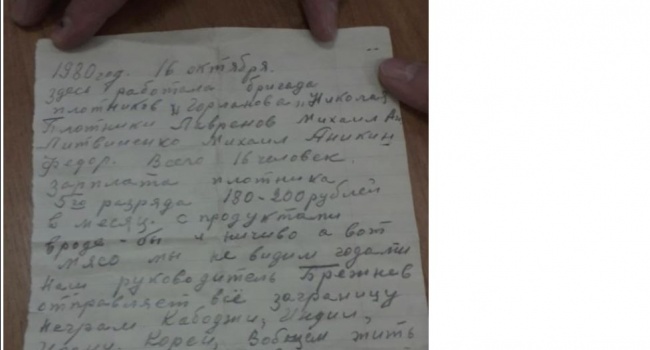 1980 год. 16 октября.
здесь работала бригада
плотников „Горланова" Николая
Плотники Лавренов Михаил
Литвиненко Михаил Аникин
Федор. Всего 16 человек.
Зарплата плотника
5го разряда 180-200 рублей
в месяц. с продуктами
вроде-бы и ничиво а вот
мясо мы не видим годами
наш руководитель Брежнев
отправляет всё заграницу
неграм Кабоджи, Индии,
Кореи, Вобщем жить